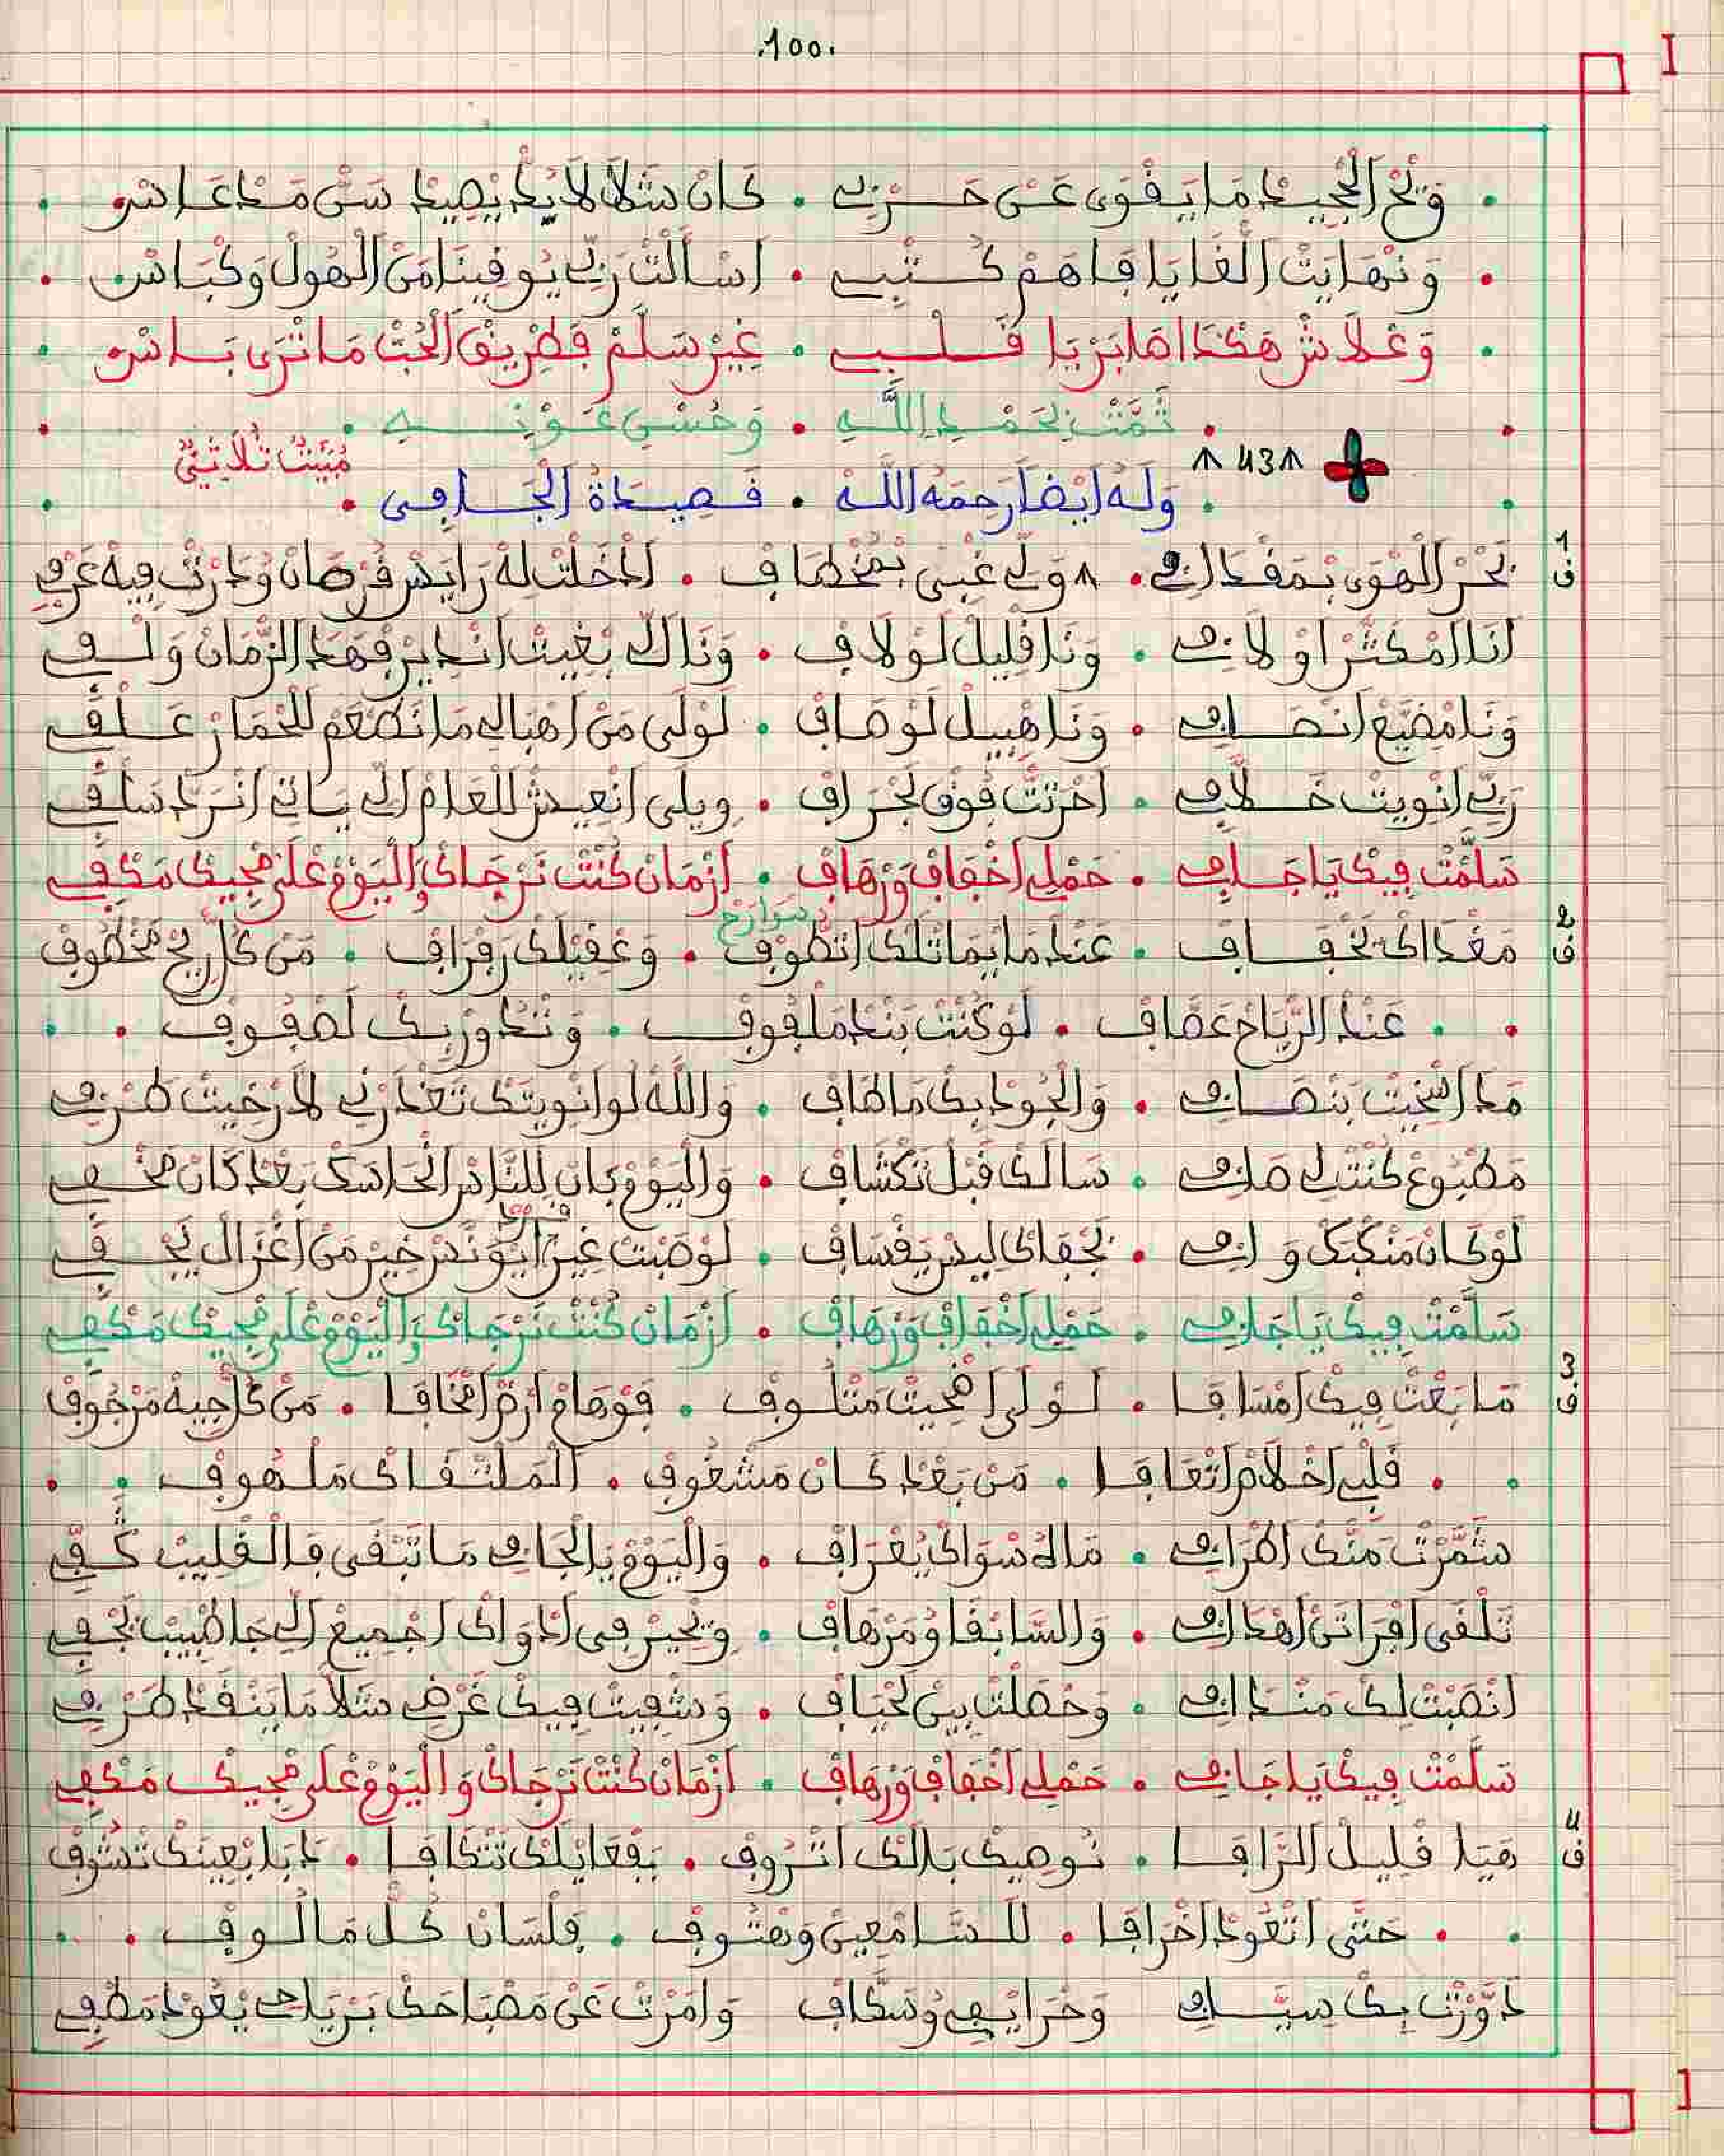 .100.
وَبْحَرْ الْحُبِيدْ مَا يَقْوَى عَنْ حَـرْبِي . كَانْ شَلَّا لَا بُدْ يْصِيدْ سَنْ مَدْ عَاسْ
وَنْهَايَتْ الْغَايَا فَاهَمْ كُـتْبِي . اسْأَلْتْ رَبِّي يُوفِينَا مَنْ الْهُولْ وَكْبَاسْ
وَعْلَاشْ هَكْدَا هَا بَرْيَا قَـلْبِي . غِيرْ سَلَّمْ فَطْرِيقْ الْحُبّْ مَا تْرَى بَـاسْ
تَمَّتْ بِحَمْدِ اللَّهِ . وَحُسْنِ عَوْنِهِ
43
مْبَيَّتْ ثْلَاثِي
وَلَهُ أَيْضاً رَحِمَهُ اللَّهُ . قَصِيدَةُ الْجَـافِي
ف 1 بَحْرْ الْهْوَى بْمَقْدَافِي . وَلِّي غْبَى بْمُخْطَافْ . ادْخَلْتْ لَهْ رَايَسْ فُرْصَانْ وُدَارْتْ فِيهْ غَرْفِي
انَا امْكَثَّرْ اوْلَافِي . وَنَا قْلِيلْ لَوْلَافْ . وَنَاكْ بْغِيتْ انْدِيرْ فْهَدْ الزّْمَانْ وَلْـفِي
وَنَا مْضَيَّعْ انْصَـافِي . وَنَا هْبِيلْ لَوْصَافْ . لَوْلَى مَنْ اهْبَالِي مَا نَطْعَمْ لَلْحْمَارْ عَـلْفِي
رَبِّي انْوِيتْ خَـلَّافِي . احْرَتْتْ فُوقْ لَجْرَافْ . وِيلَى انْعِيشْ لَلْعَامْ الِّي يَـاتِي انْرَدّْ سَلْفِي
سَلَّمْتْ فِيكْ يَا جَـافِي . حَمْلِي اخْفَافْ وَرْهَافْ . ازْمَانْ كُنْتْ نَرْجَاكْ وَالْيَوْمْ عْلَى مْجِيكْ مَكْفِي
ف 2 مَغْدَاكْ بَخْفَـافْ . عَنْدْ مَا يْمَاتْلَكْ اتْطُوفْ . وَعْقِيلَكْ رَفْرَافْ . مَنْ كُلّْ رِيحْ مَخْطُوفْ
سْوَارَحْ
عَنْدْ الرّْيَاحْ عَصَّافْ . لَوْ كُنْتْ بَنْدْ مَلْفُوفْ . وَتْدُورْ بِكْ لَصْفُوفْ
مَدَا اسْخِيتْ بَنْصَـافِي . وَالْجُودْ بِكْ مَاطَافْ . وَاللَّهْ لَوْ انْوِيتَكْ تَغْدَرْنِي لَا رْخِيتْ طَرْفِي
مَطْبُوعْ كُنْتْ لِي صَافِي . سَالَكْ قْبَلْ تَكْشَافْ . وَالْيَوْمْ بَانْ لَلنَّادَرْ الْحَاسَكْ بَعْدْ كَانْ مَخْـفِي
لَوْ كَانْ مَنْكَبَكْ وَافِي . بَجْفَاكْ لِيسْ يَقْسَافْ . لَوْ صَبْتْ غِيرْ ايَوْنَسْ خِيرْ مَنْ اغْزَالْ يَجْـفِي
سَلَّمْتْ فِيكْ يَا جَافِي . حَمْلِي اخْفَافْ وَرْهَافْ . ازْمَانْ كُنْتْ نَرْجَاكْ وَالْيَوْمْ عْلَى مْجِيكْ مَكْفِي
ف 3 مَا بَعْتْ فِيكْ امْسَافَـا . لَـوْلَى اهْجِيتْ مَتْلُـوفْ . فَوْهَامْ ارْمَ اتْخَافَـا . مَنْ كُلّْ جِيهْ مَرْجُوفْ
قَلْبِي اخْلَامَ اتْعَافَـا . مَنْ بَعْدْ كَـانْ مَشْغُوفْ . الْمَلْتْقَـاكْ مَلْهُوفْ
شَمَّرْتْ مَنَّكْ اطْرَافِي . مَالَهْ سْوَاكْ يُعْرَافْ . وَالْيَوْمْ يَا الْجَافِي مَا تَبْقَى فَـالْقْلِيبْ كَـفِّي
تَلْقَى اقْرَاتَنْ اهْدَافِي . وَالسَّابْقَا وُمَرْهَافْ . وِيْحِيرْ فِي ادْوَاكْ اجْمِيعْ الِّي جَا طْبِيبْ بَجْـفِي
انْصَبْتْ لَكْ مَنْدَافِي . وَحْصَلْتْ بِينْ لَحْيَافْ . وَشْفِيتْ فِيكْ غَرْضِي شَلَّا مَا يَنْفَدْ ظَرْفِي
سَلَّمْتْ فِيكْ يَا جَافِي . حَمْلِي اخْفَافْ وَرْهَافْ . ازْمَانْ كُنْتْ نَرْجَاكْ وَالْيَوْمْ عْلَى مْجِيكْ مَكْفِي
ف 4 هَيَا قْلِيـلْ الرَّافَـا . نُوصِيكْ بَالَكْ اتْرُوفْ . بَفْعَايْلَكْ تَتْكَافَـا . دَابَا بْعِينَكْ تْشُوفْ
حَتَّى اتْعُودْ اخْرَافَـا . لَلسَّـامْعِينْ وَهْتُوفْ . فَلْسَانْ كُـلّْ مَالُـوفْ
دَوَّرْتْ بِكْ سِيَّـافِي وَحْرَايْفِي وُسَكَّافْ وَامَرْتْ عَنْ مَصْبَاحَكْ بَرْيَاحِي يْعُودْ مَطْفِي